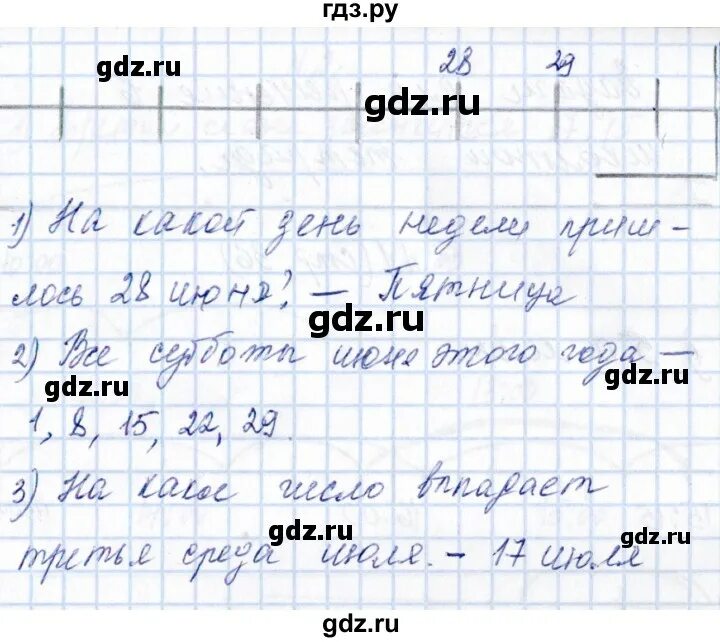 гдз.ру
gdz.ru
28 29
gdz.ru
gdz.ru
1) На какой день недели приш-
лось 28 июня? — Пятница
gdz.ru
2) Все субботы июня этого года —
gdz.ru gdz.ru
1, 8, 15, 22, 29.
3) На какое число выпадает
gdz.ru
третья среда июля. - 17 июля
gdz.ru
gdz.ru